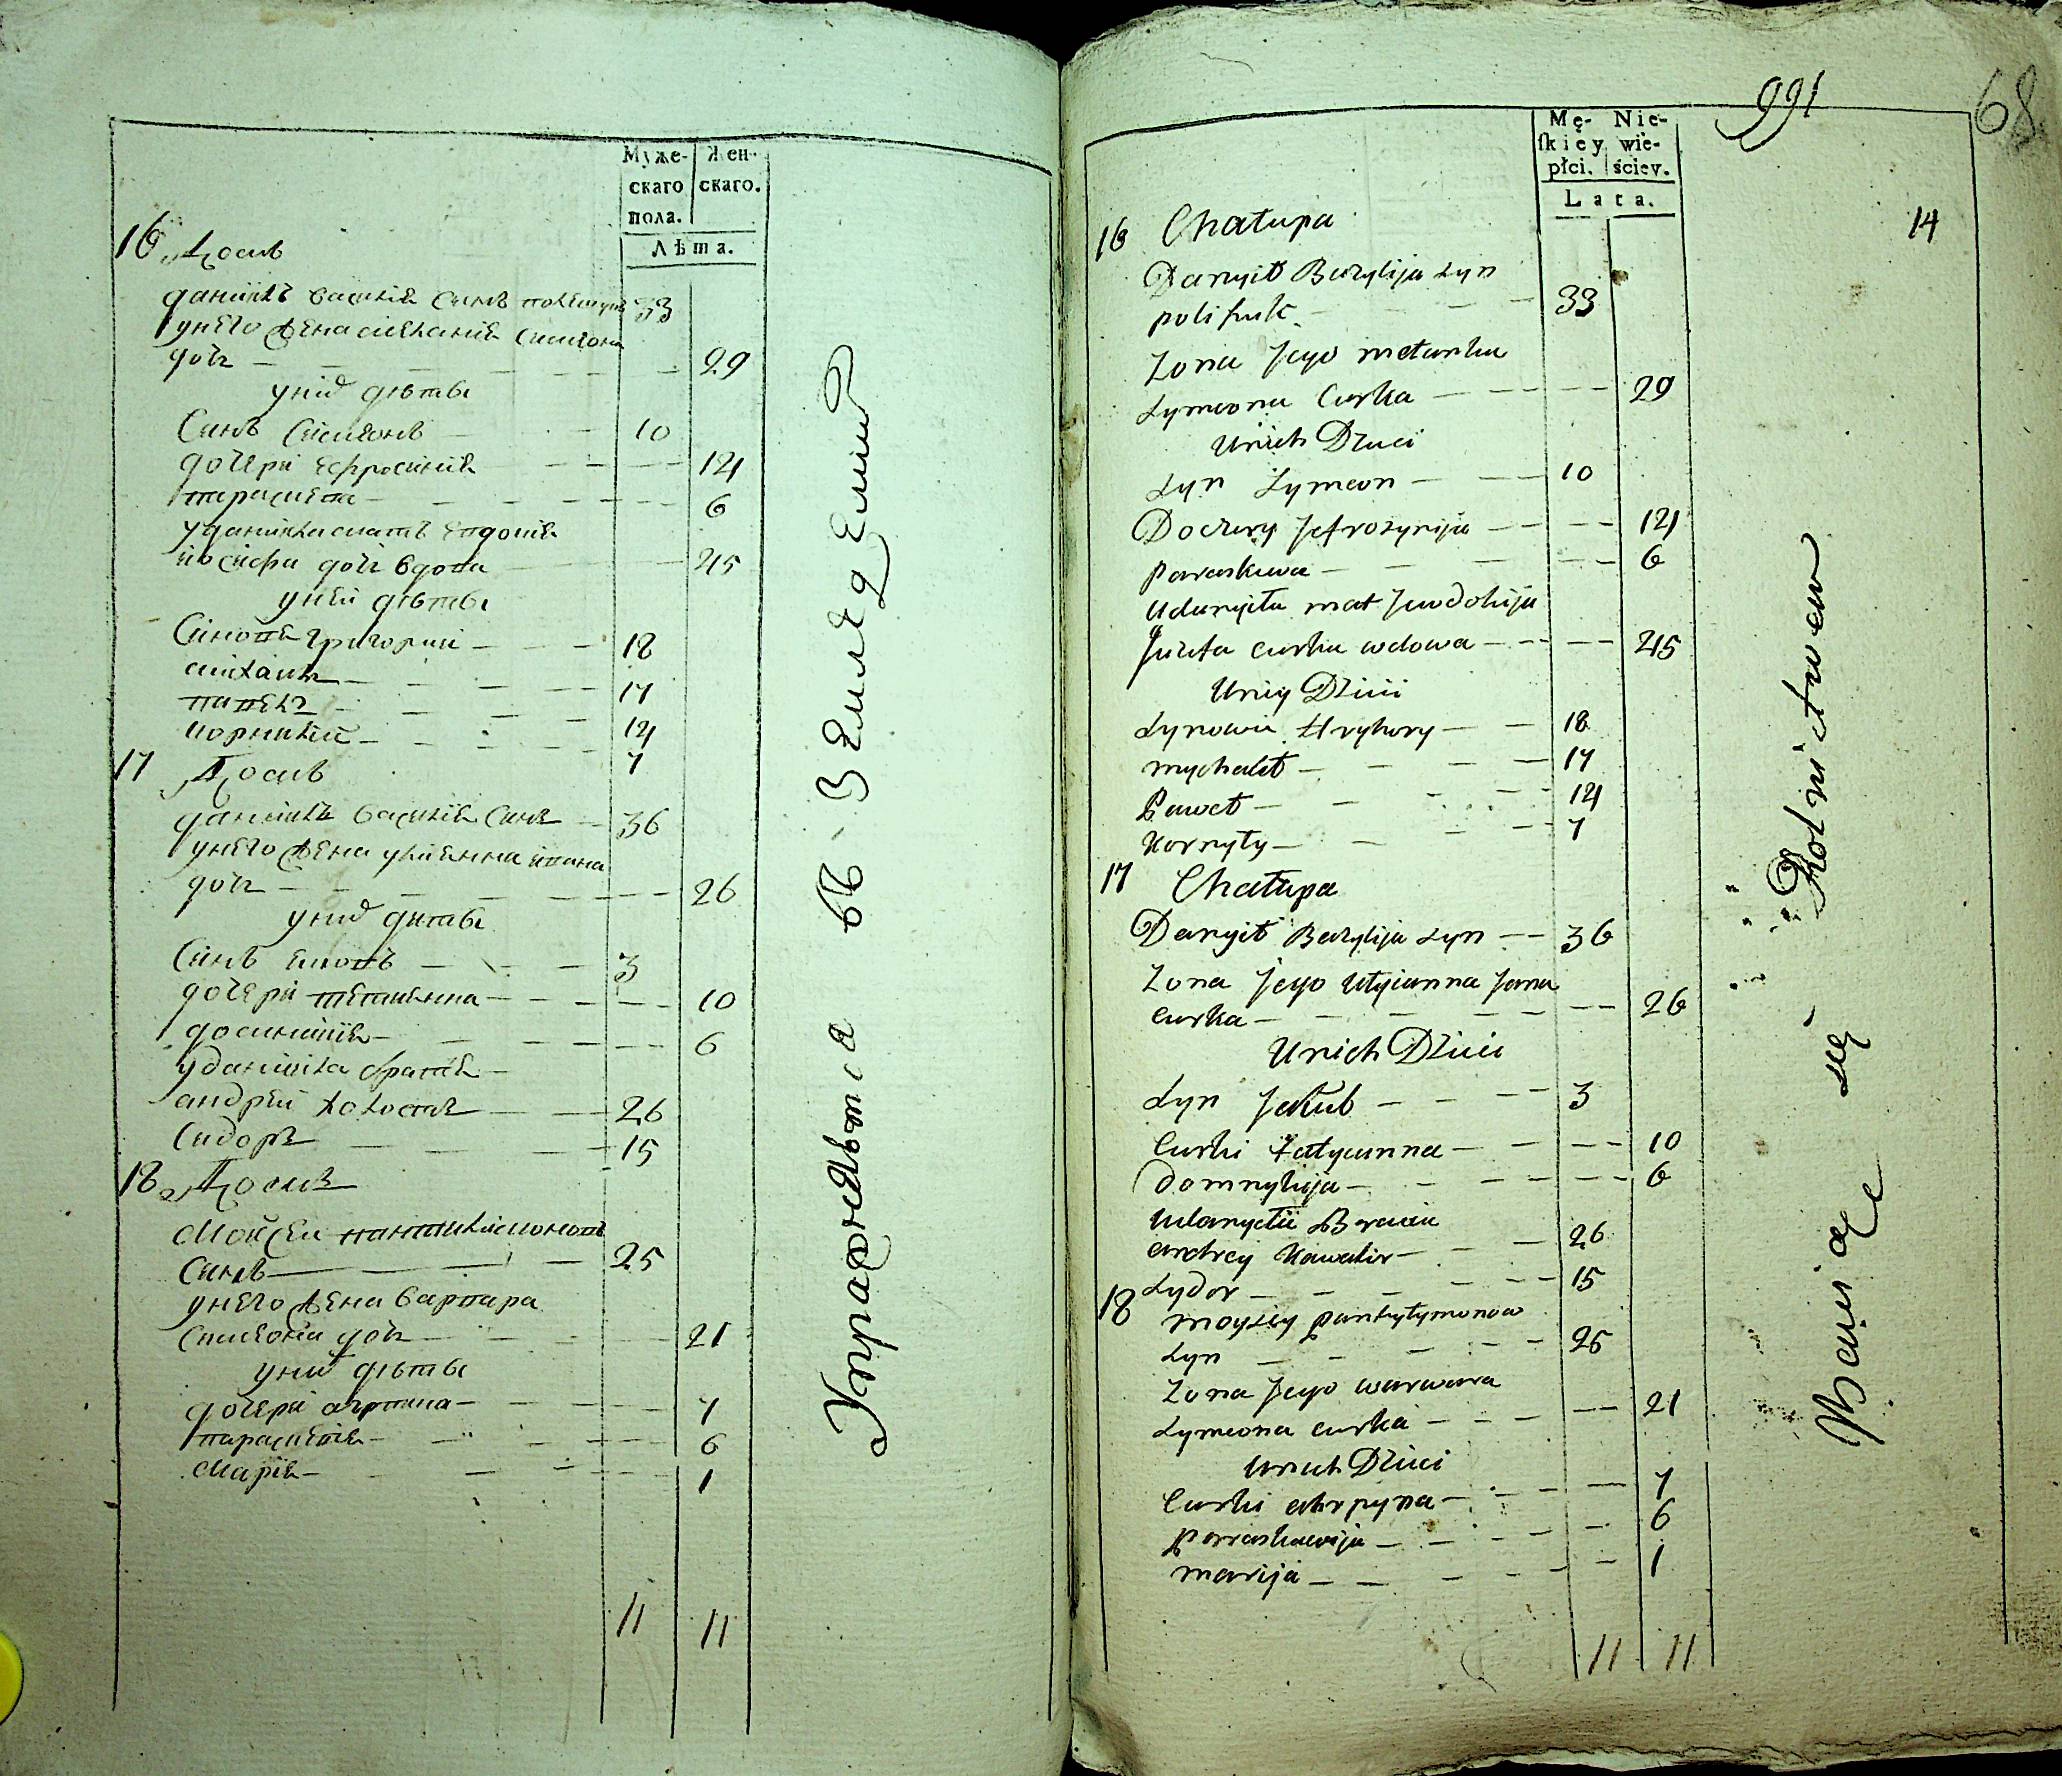 Муже-
скаго
пола.
Жен-
скаго.
Лѣта.
16 Домъ
данiилъ василiя синъ полещукъ 33
унего жена меланiя симеона
дочь 29
уних дѣти
Синъ Симеонъ 10
дочери Ефросинiя 14
параскева 6
уданиила мать Евдокiя
иосифа дочь вдова 45
уней дѣти
Синовя Григорий 18
михаилъ 17
павелъ 14
корнилий 7
17 Домъ
даниилъ василiя синъ 36
унего жена улиянна ивана
дочь 26
уних дѣти
Синъ яковъ 3
дочери татиянна 10
домникiя 6
уданиила братя
андрей холостъ 26
Сидоръ 15
18 Домъ
Мойсей пантилимоновъ
Синъ 25
унего жена варвара
Симеона дочь 21
уних дѣти
дочери агрпина 7
параскевiя 6
Марiя 1
11 11
Упражняются въ Земледелии
991
68
14
Mę-
skiey
płci.
Nie-
wie-
ściey.
Lata.
16 Chałupa
Danyił Bazylija syn
polisuk 33
Zona Jego mełanka
Symeona Curka 29
Unich Dzieci
Syn Symeon 10
Doczery Jefrozynija 14
paraskewa 6
Udanyiła mat Jewdokija
Jozefa curka wdowa 45
Uniey Dzieci
Synowie Hryhory 18
mychaił 17
Paweł 14
Kornyły 7
17 Chałupa
Danyił Bazylija syn 36
Zona Jego Ulyianna Jana
curka 26
Unich Dzieci
Syn Jakub 3
Curki Tatyanna 10
Domnykija 6
Udanyiła Bracia
andrey Kawalir 26
Sydor 15
18 moysiey pantyłymonow
Syn 25
Zona Jego warwara
Symeona curka 21
Unich Dzieci
Curki ahrpyna 7
paraskewija 6
marija 1
11 11
Bawiące się Rolnictwem